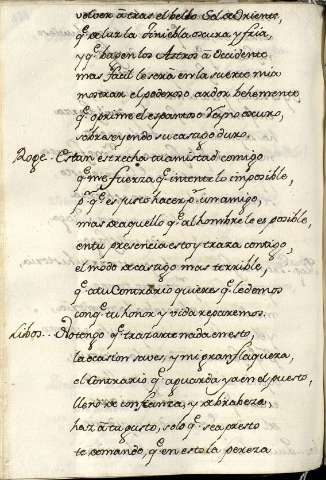 volver atras el bello Sol de Oriente,
q̃ de luz la tiniebla oscura, y fria,
y q̃ bajen los Astros a Occidente
mas facil le será en la suerte mia
mostrar el poderoso ardor behemente,
q̃ oprime el espantoso Reyno oscuro,
sobreseyendo su castigo duro.
Roge. Es tan estrecha tu amistad comigo
q̃ me fuerza q̃ intente lo imposible,
p.q̃ es justo hacer p.r un amigo,
mas de aquello q̃ al hombre le es posible,
en tu presencia estoy traza contigo,
el modo de castigo mas terrible,
q̃ a tu Contrario quieres q̃ le demos
con q̃ tu honor y vida reparemos.
Lisbo. No tengo q̃ trazarte nada en esto,
la ocasion saves, y mi gran flaqueza,
el Contrario q̃ aguarda ya en el puesto,
lleno de confianza, y de brabeza,
haz a tu gusto, solo q̃ sea presto
te demando, q̃ en esto la pereza